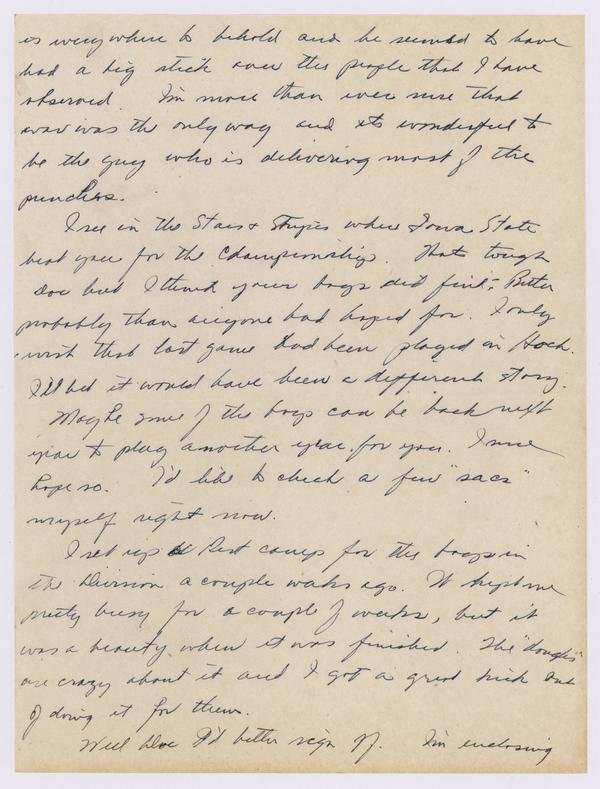 is everywhere to behold and he seemed to have
had a big stick over the people that I have
observed. I'm more than ever sure that
war was the only way and its wonderful to
be the guy who is delivering most of the
punches.
I see in the Stars & Stripes where Iowa State
beat you for the Championship. Thats tough
Doc but I think your boys did fine; Better
probably than anyone had hoped for. I only
wish that last game had been played in Hoch.
I'll bet it would have been a different story.
Maybe some of the boys can be back next
year to play another year for you. I sure
hope so. I'd like to check a few "sacs"
myself right now.
I set up a Rest camp for the boys in
the Division a couple weeks ago. It kept me
pretty busy for a couple of weeks, but it
was a beauty when it was finished. The "doughs"
are crazy about it and I got a great kick out
of doing it for them.
Well Doc I'd better sign off. I'm enclosing